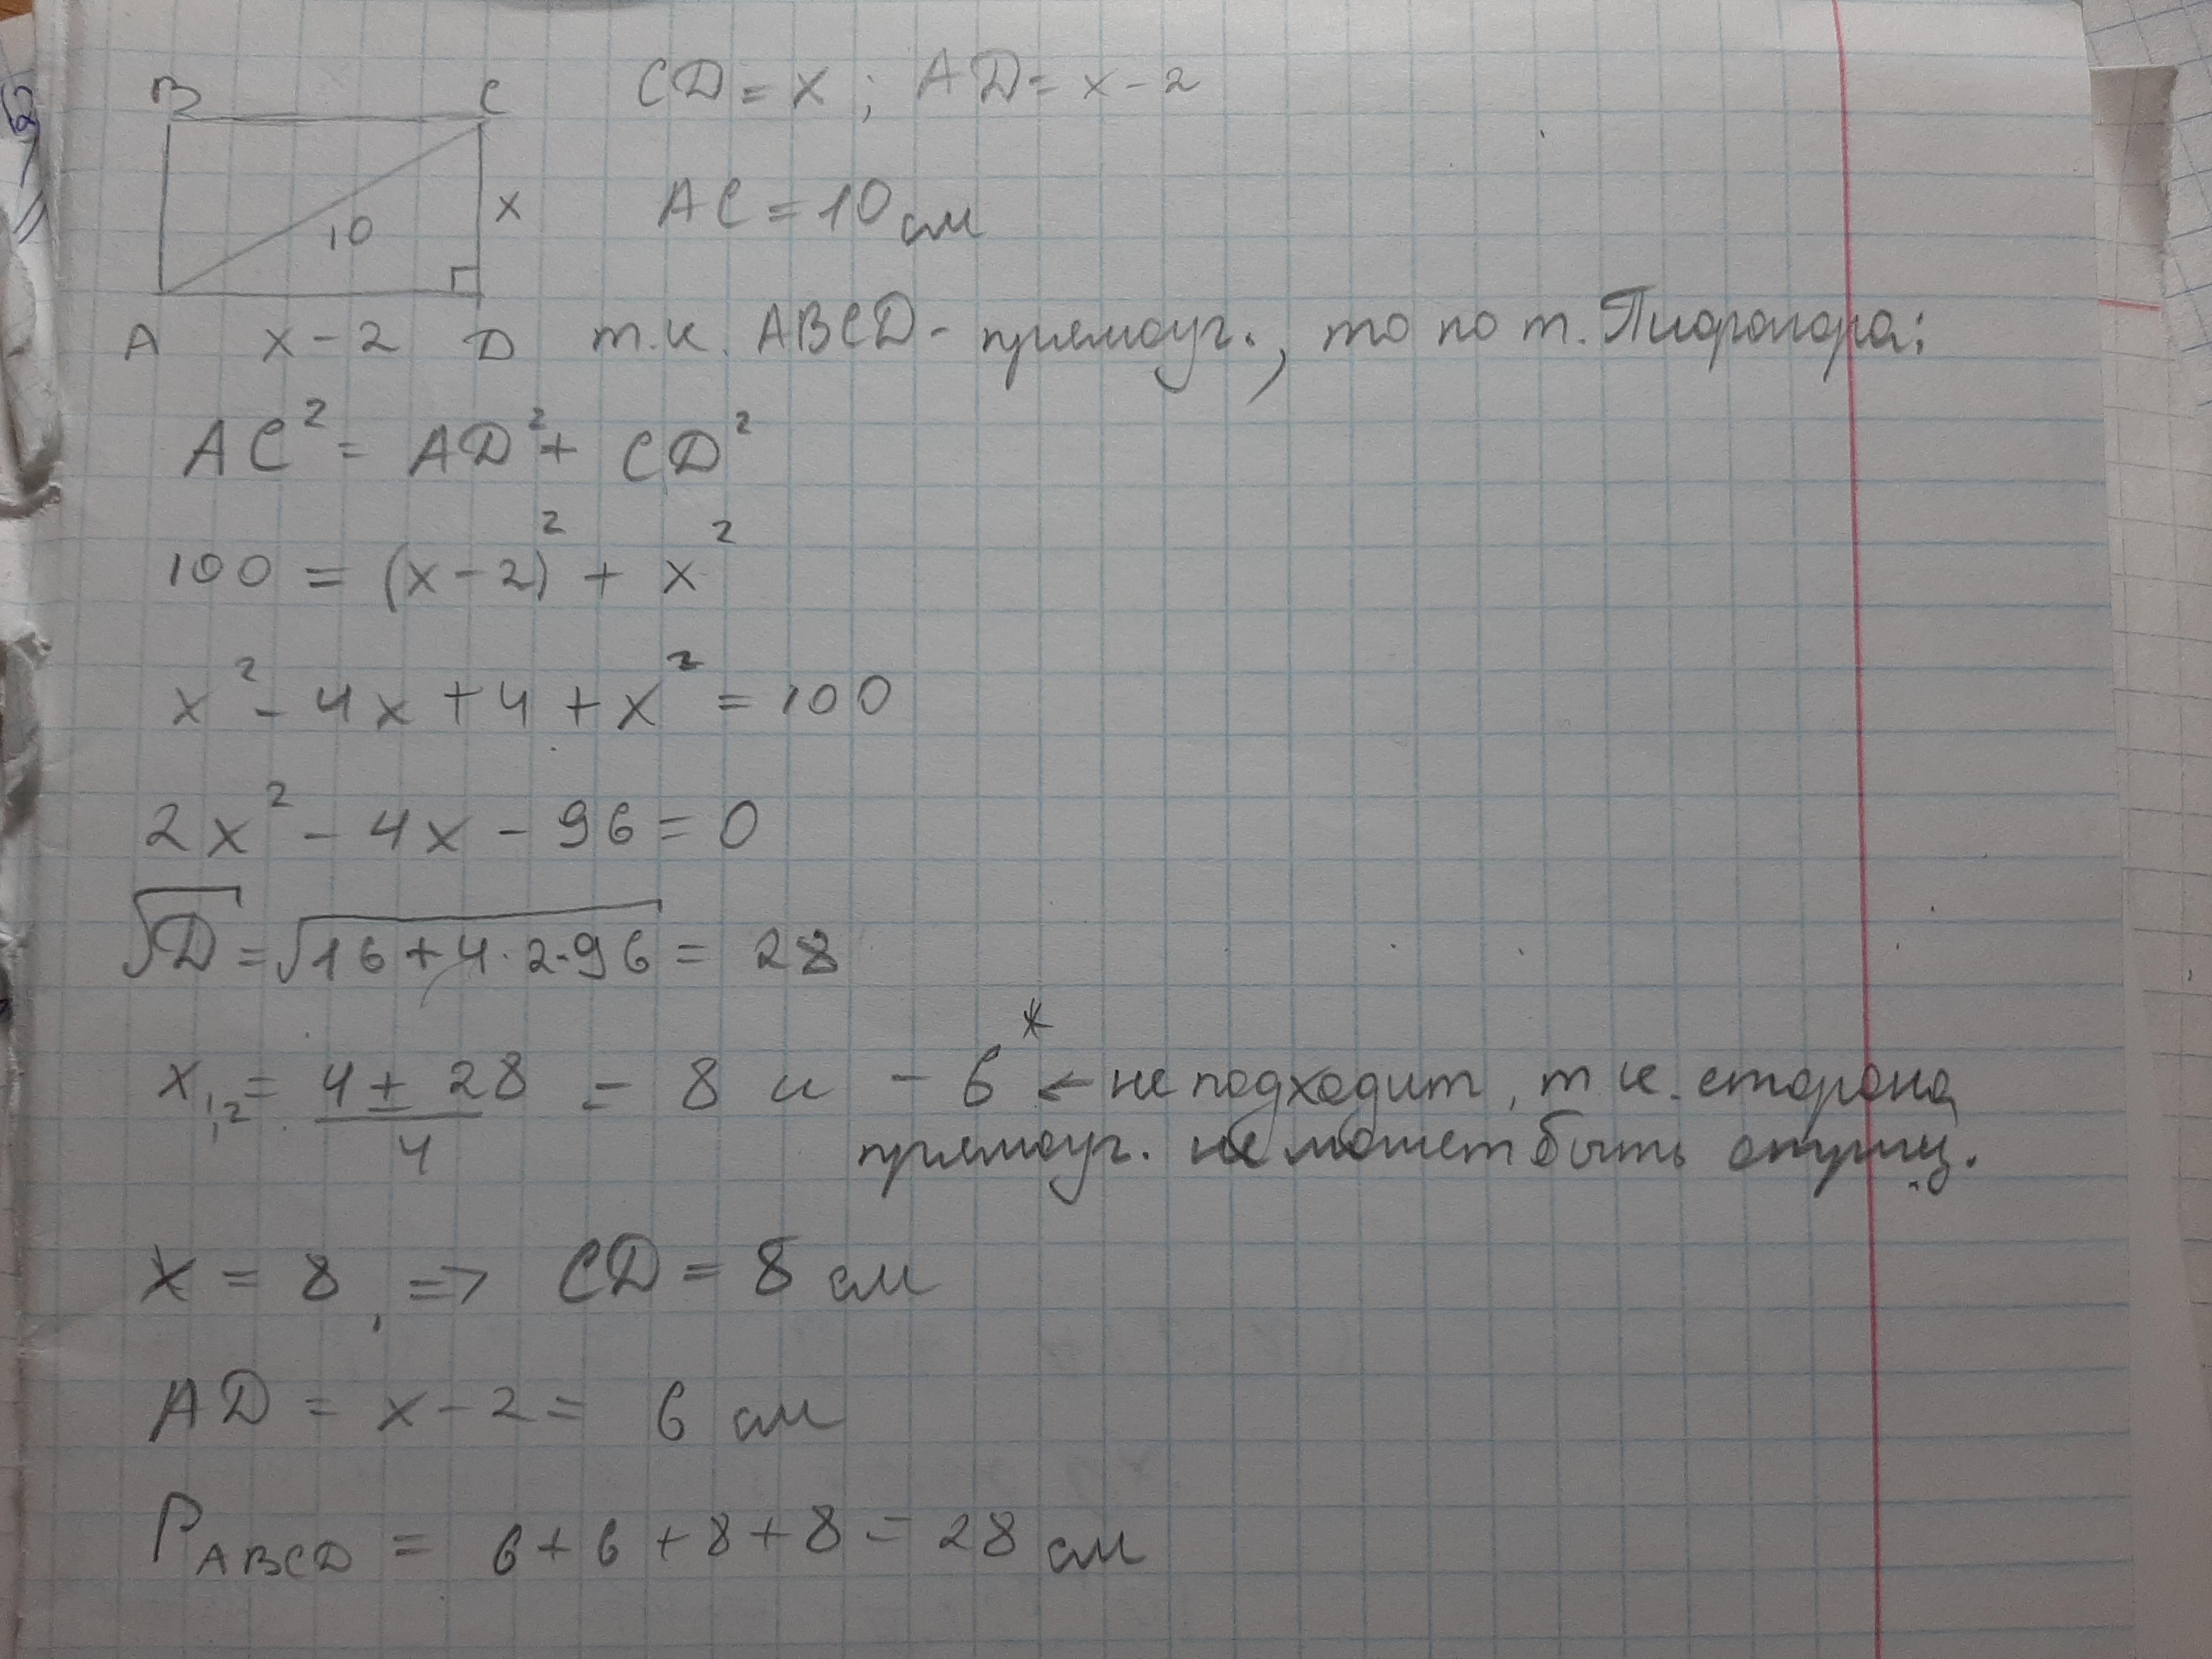 B C CD = x ; AD = x - 2
10 x AC = 10 см
A x - 2 D т.к. ABCD - прямоуг., то по т. Пифагора:
AC² = AD² + CD²
100 = (x - 2)² + x²
x² - 4x + 4 + x² = 100
2x² - 4x - 96 = 0
√D = √16 + 4 · 2 · 96 = 28
x₁,₂ = 4 ± 28 / 4 = 8 и - 6* ← не подходит, т.к. сторона
прямоуг. не может быть отриц.
x = 8, => CD = 8 см
AD = x - 2 = 6 см
P ABCD = 6 + 6 + 8 + 8 = 28 см